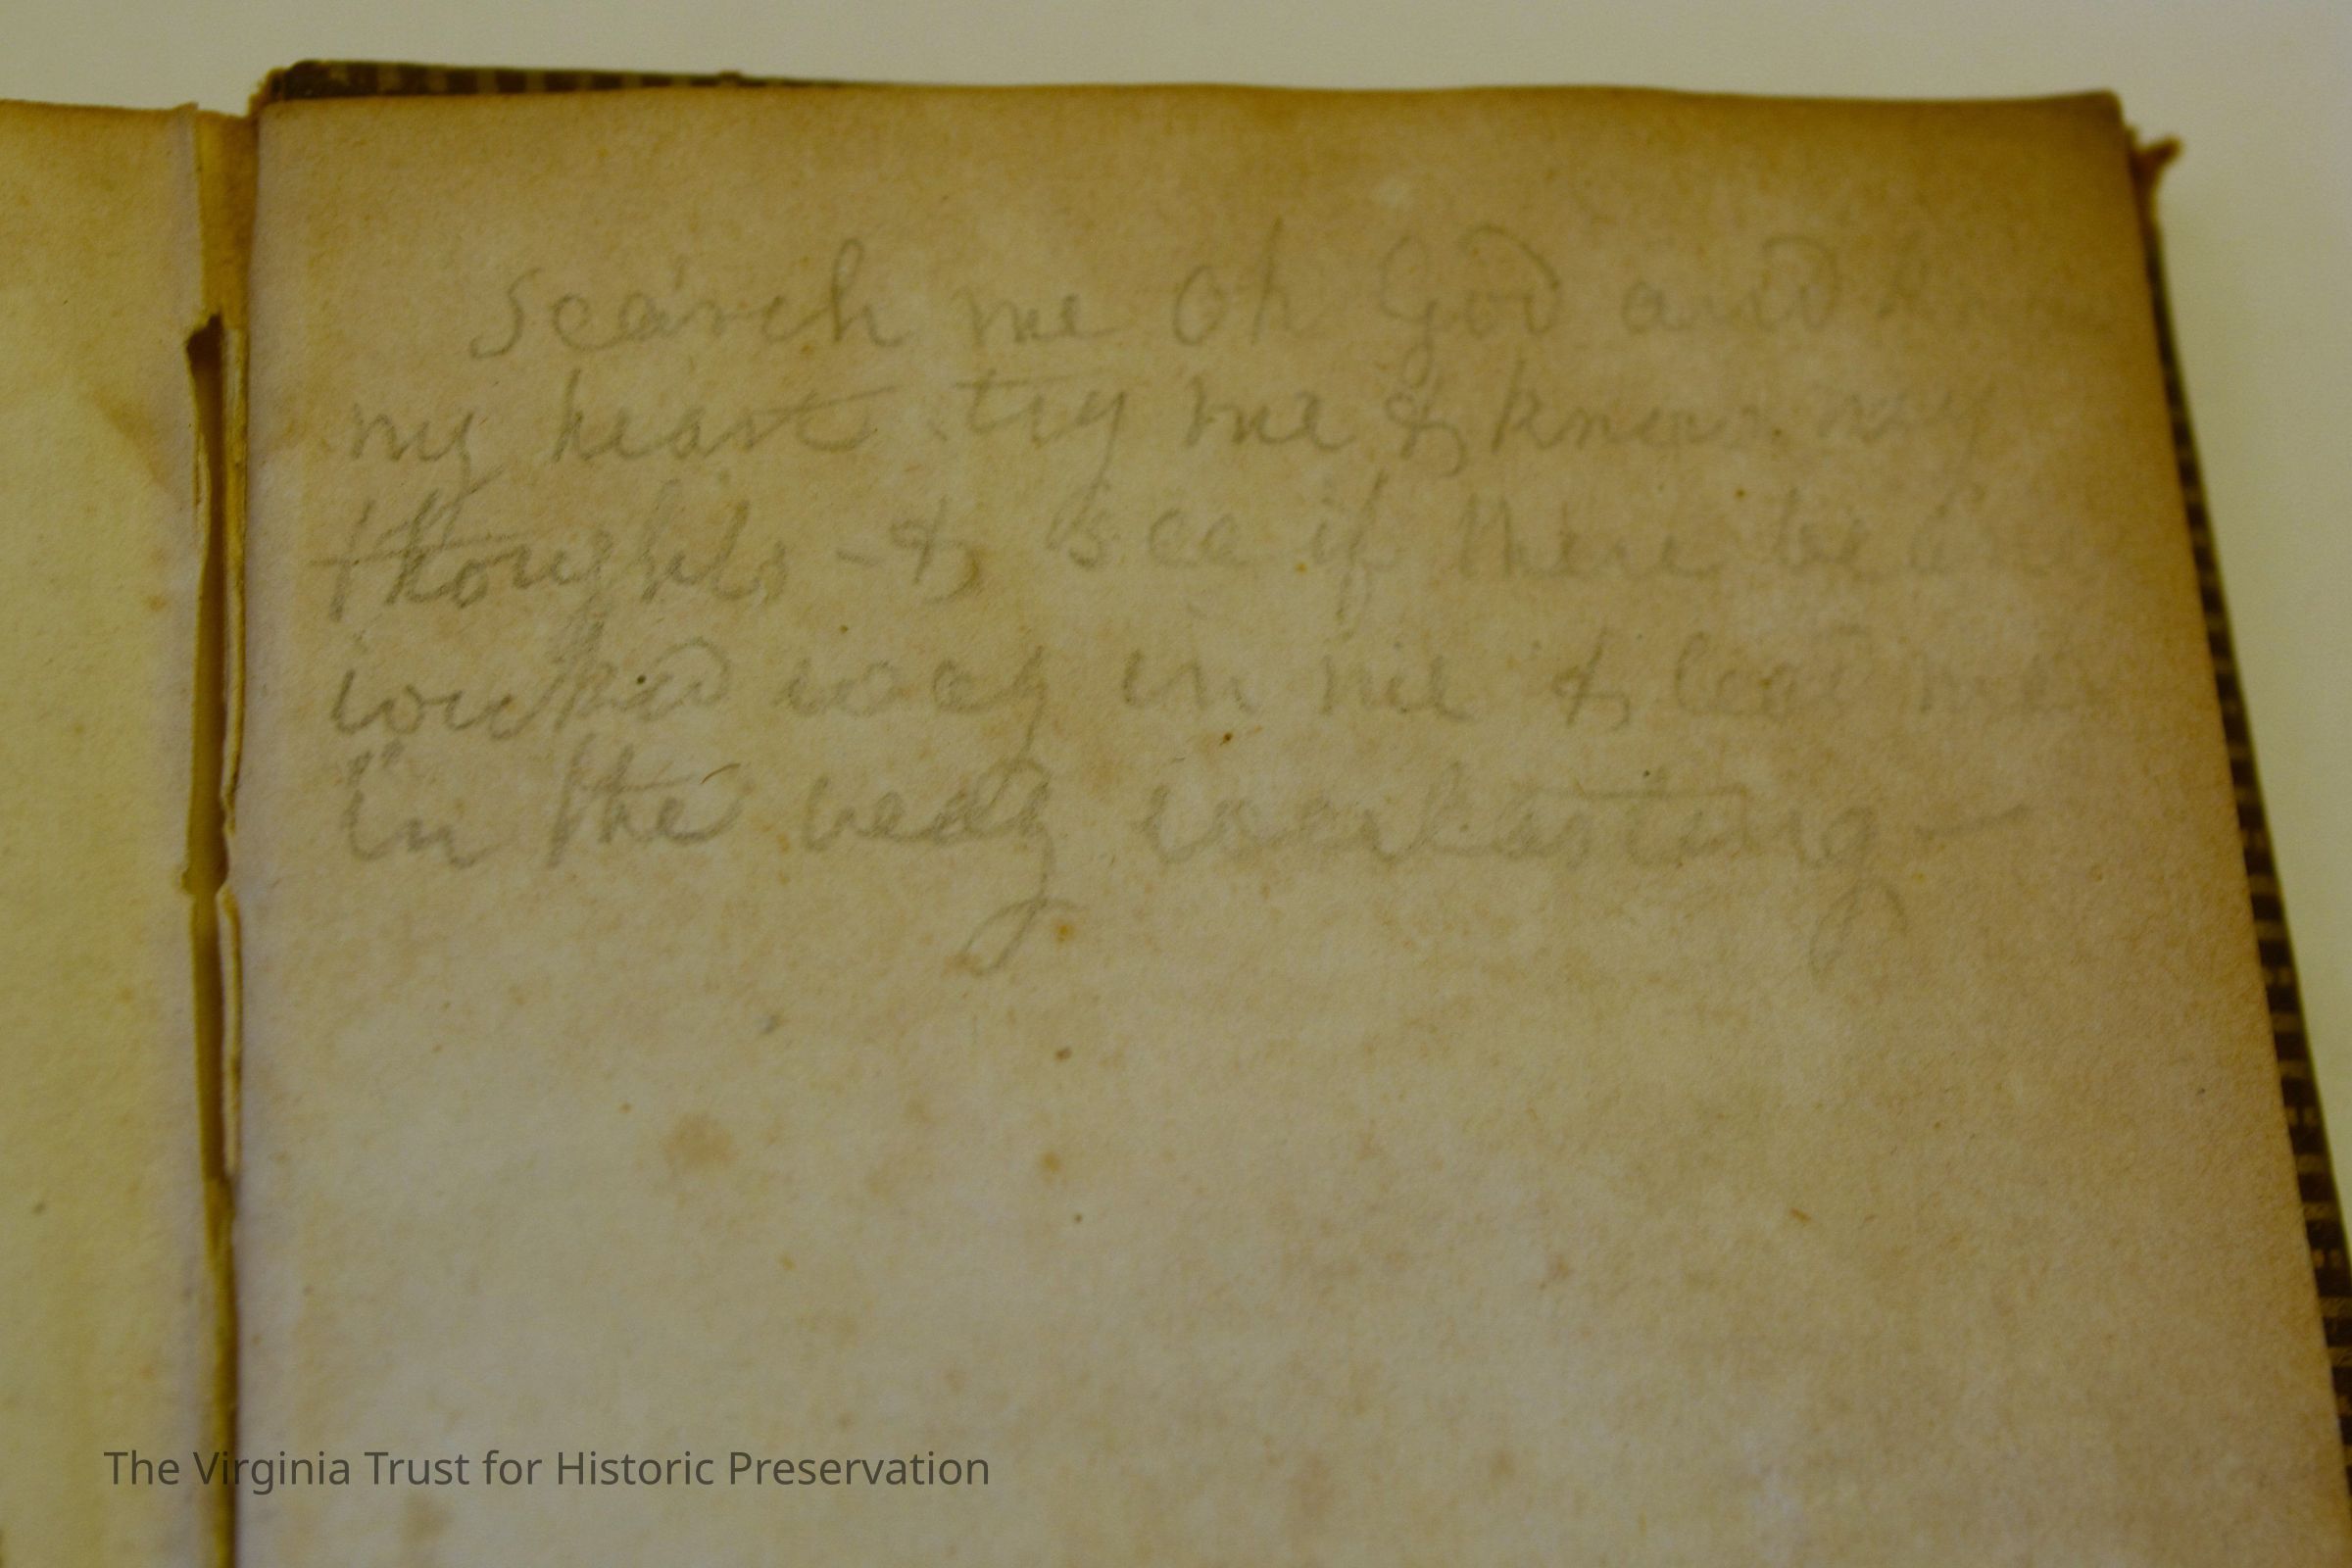 Search me Oh God and
my heart try me & know my
thoughts - & see if there be
wicked way in me & lead me
in the way everlasting -
The Virginia Trust for Historic Preservation